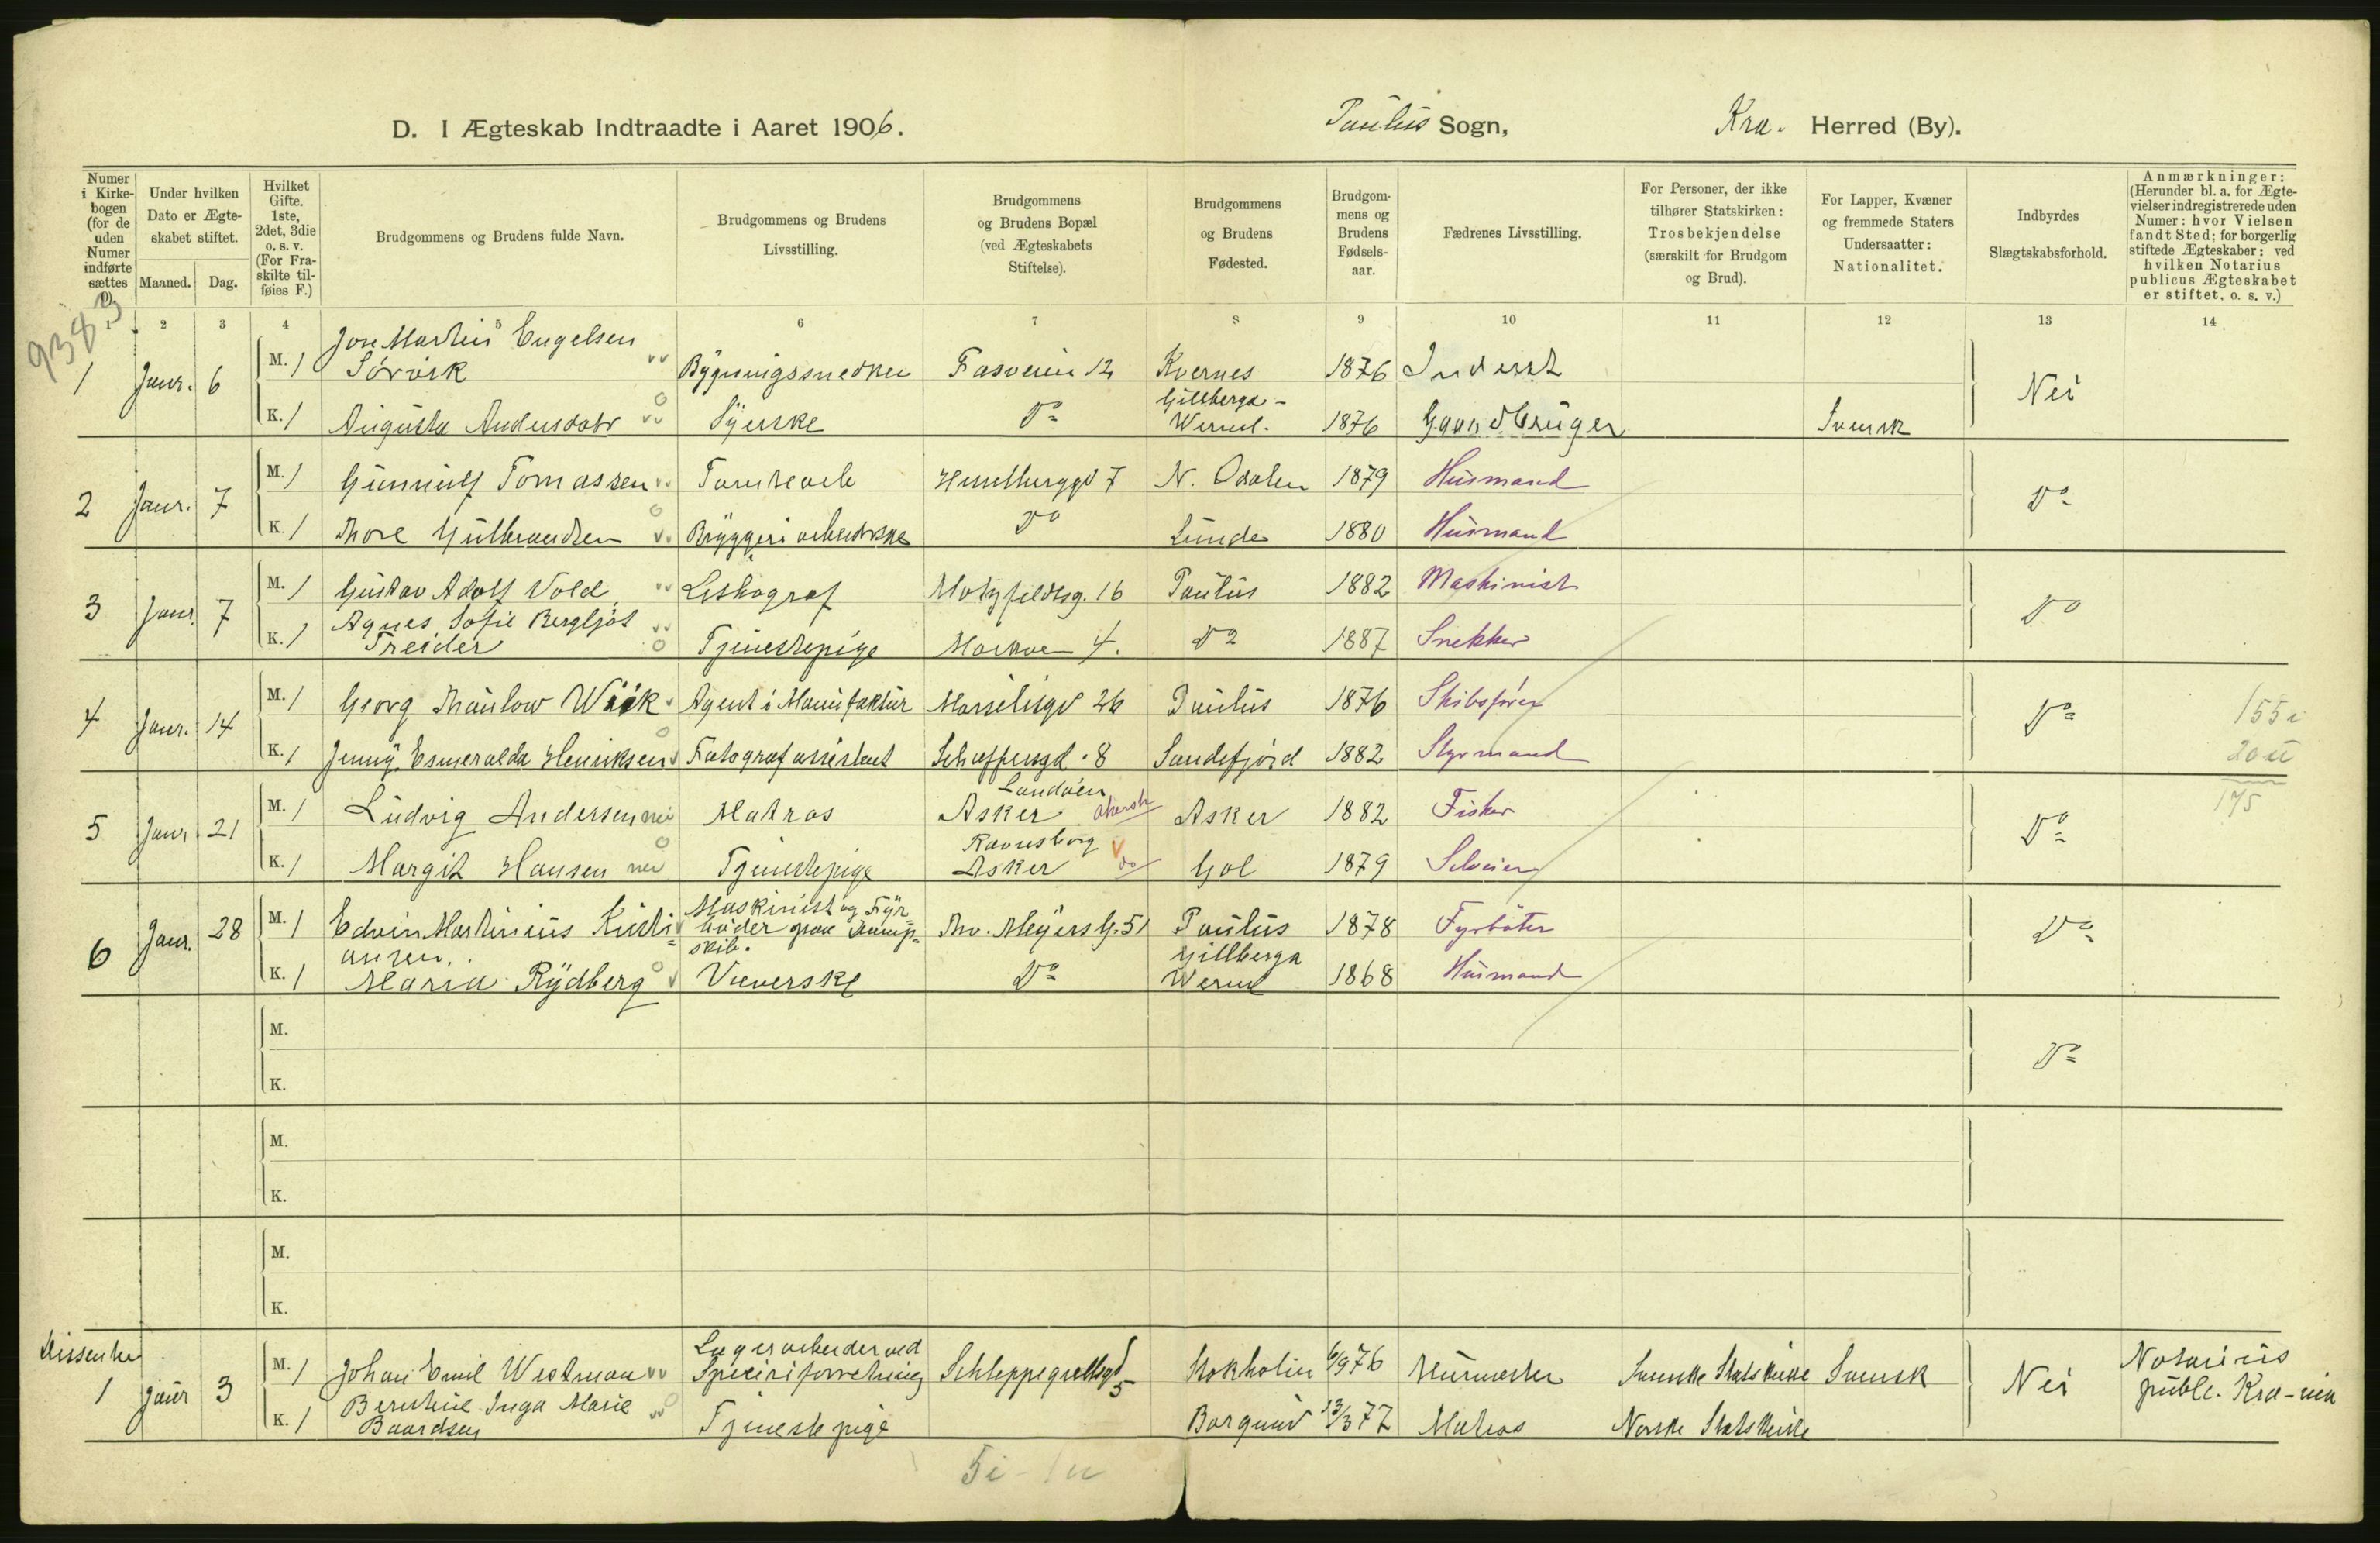 D. I Ægteskab Indtraadte i Aaret 1906.
Paulus Sogn,
Kra. Herred (By).
Numer i Kirkebogen (for de uden Numer indførte sættes 0).
Under hvilken Dato er Ægteskabet stiftet.
Maaned.
Dag.
Hvilket Gifte. 1ste, 2det, 3die o. s. v. (For Fraskilte tilføies F.)
Brudgommens og Brudens fulde Navn.
Brudgommens og Brudens Livsstilling.
Brudgommens og Brudens Bopæl (ved Ægteskabets Stiftelse).
Brudgommens og Brudens Fødested.
Brudgommens og Brudens Fødselsaar.
Fædrenes Livsstilling.
For Personer, der ikke tilhører Statskirken: Trosbekjendelse (særskilt for Brudgom og Brud).
For Lapper, Kvæner og fremmede Staters Undersaatter: Nationalitet.
Indbyrdes Slægtskabsforhold.
Anmærkninger: (Herunder bl. a. for Ægtevielser indregistrerede uden Numer: hvor Vielsen fandt Sted; for borgerlig stiftede Ægteskaber: ved hvilken Notarius publicus Ægteskabet er stiftet, o. s. v.)
1 2 3 4 5 6 7 8 9 10 11 12 13 14
9383
1 Janr. 6 M. 1 Jon Martin Engelsen Sørvik Bygningssnedker Fasvein 12 Kvernes 1876 Inderst Nei
K. 1 Augusta Andersdatr Syerske Do Gillberga - Werml. 1876 Gaardbruger Svensk
2 Janr. 7 M. 1 Gunnulf Tomassen 7 N. Odalen 1879 Husmand Do
K. 1 Thore Gulbrandsen Bryggeriarbeiderske Do Lunde 1880 Husmand
3 Janr. 7 M. 1 Gustav Adolf Vold Lithograf Motzfeldtsg. 16 Paulus 1882 Maskinist Do
K. 1 Agnes Sofie Bergljot Treider Tjenestepige Markve 4. Do 1887 Snekker
4 Janr. 14 M. 1 Georg Thaulow Wiik Agent i Manufaktur 26 Paulus 1876 Skibsfører Do 155 i
K. 1 Jenny Esmeralda Henriksen Fotografassistent 8 Sandefjord 1882 Styrmand 20 u
175
5 Janr 21 M. 1 Ludvig Andersen nei Matros Landøen Asker Asker 1882 Fisker Do
K. 1 Margit Hansen nei Tjenestepige Ravnsborg Asker do Gol 1879 Selveier
6 Janr. 28 M. 1 Edvin Martinius Kristiansen Maskinist og Fyrbøder Thv. Meyers G. 51 Paulus 1878 Fyrbøter Do
K. 1 Maria Rydberg Væverske Do Gillberga Werml 1868 Husmand
M.
K.
Do
M.
K.
M.
K.
Dissenter
1 Janr 3 M. 1 Johan Emil Westman Lagerarbeider ved Speceriforretning Schleppegrellsgd 5 Stokholm 6/9 76 Murmester Svenske Statskirke Svensk Nei Notarius publ. Kra-nia
K. 1 Berntine Inga Marie Baardsen Tjenestepige Borgund 13/3 77 Matros Norske Statskirke
5 i - 1 u